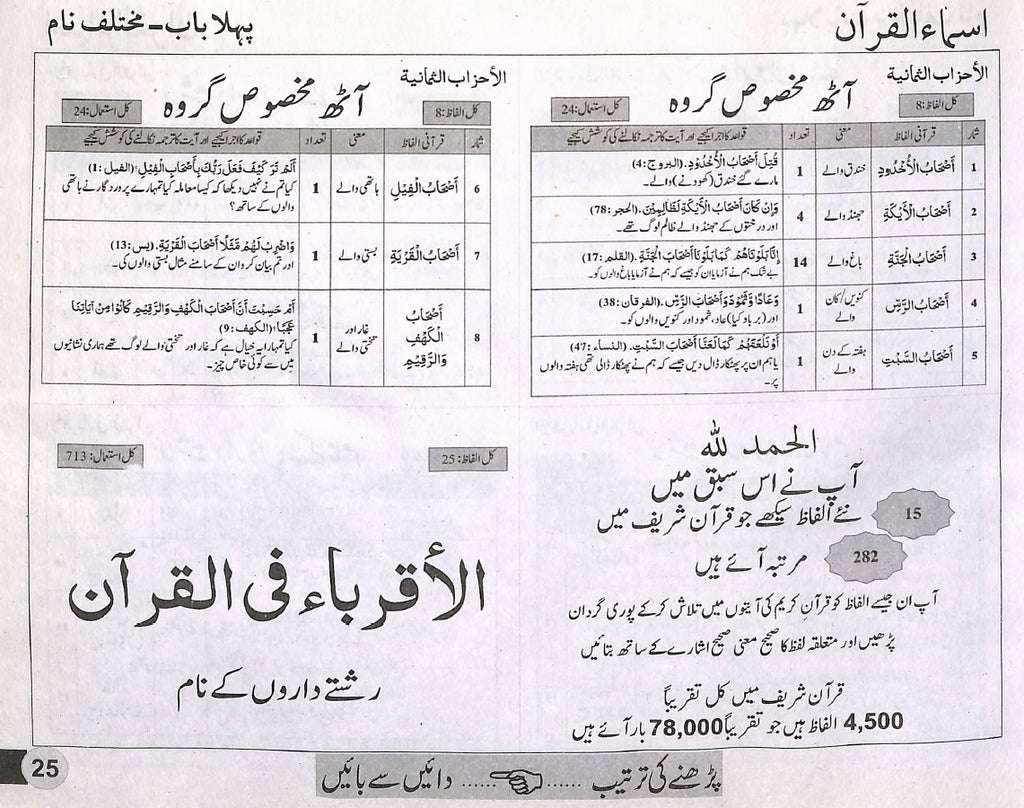 اسماء القرآن
پہلا باب - مختلف نام
الأحزاب الثمانية
آٹھ مخصوص گروہ
کل الفاظ: 8
کل استعمال: 24
شمار قرآنی الفاظ معنی تعداد قواعد کا اجرا کیجیے اور آیت کا ترجمہ نکالنے کی کوشش کیجیے
1 أَصْحَابُ الْأُخْدُودِ خندق والے 1 قُتِلَ أَصْحَابُ الْأُخْدُودِ. (البروج: 4)
مارے گئے خندق (کھودنے) والے۔
2 أَصْحَابُ الْأَيْكَةِ جھنڈ والے 4 وَإِنْ كَانَ أَصْحَابُ الْأَيْكَةِ لَظَالِمِيْنَ. (الحجر: 78)
اور درختوں کے جھنڈ والے ظالم لوگ تھے۔
3 أَصْحَابُ الْجَنَّةِ باغ والے 14 إِنَّا بَلَوْنَاهُمْ كَمَا بَلَوْنَا أَصْحَابَ الْجَنَّةِ. (القلم: 17)
بے شک ہم نے آزمایا ان کو جیسے کہ ہم نے آزمایا باغ والوں کو۔
4 أَصْحَابُ الرَّسِّ کنویں/کان والے 1 وَعَادًا وَّثَمُوْدَ وَأَصْحَابَ الرَّسِّ. (الفرقان: 38)
اور (برباد کیا) عاد، ثمود اور کنویں والوں کو۔
5 أَصْحَابُ السَّبْتِ ہفتہ کے دن والے 1 أَوْ نَلْعَنَهُمْ كَمَا لَعَنَّا أَصْحَابَ السَّبْتِ. (النساء: 47)
یا ہم ان پر پھٹکار ڈال دیں جیسے کہ ہم نے پھٹکار ڈالی تھی ہفتہ والوں
پر۔
الأحزاب الثمانية
آٹھ مخصوص گروہ
کل الفاظ: 8
کل استعمال: 24
شمار قرآنی الفاظ معنی تعداد قواعد کا اجرا کیجیے اور آیت کا ترجمہ نکالنے کی کوشش کیجیے
6 أَصْحَابُ الْفِيْلِ ہاتھی والے 1 أَلَمْ تَرَ كَيْفَ فَعَلَ رَبُّكَ بِأَصْحَابِ الْفِيْلِ؛ (الفيل: 1)
کیا تم نے نہیں دیکھا کہ کیسا معاملہ کیا تمہارے پروردگار نے ہاتھی
والوں کے ساتھ؟
7 أَصْحَابُ الْقَرْيَةِ بستی والے 1 وَاضْرِبْ لَهُمْ مَّثَلًا أَصْحَابَ الْقَرْيَةِ. (يس: 13)
اور تم بیان کرو ان کے سامنے مثال بستی والوں کی۔
8 أَصْحَابُ الْكَهْفِ وَالرَّقِيْمِ غار اور تختی والے 1 أَمْ حَسِبْتَ أَنَّ أَصْحَابَ الْكَهْفِ وَالرَّقِيْمِ كَانُوْا مِنْ آيَاتِنَا
عَجَبًا؛ (الكهف: 9)
کیا تمہارا یہ خیال ہے کہ غار اور تختی والے لوگ تھے ہماری نشانیوں
میں سے کوئی خاص چیز۔
الحمد للہ
آپ نے اس سبق میں
15 نئے الفاظ سیکھے جو قرآن شریف میں
282 مرتبہ آئے ہیں
آپ ان جیسے الفاظ کو قرآن کریم کی آیتوں میں تلاش کرکے پوری گردان
پڑھیں اور متعلقہ لفظ کا صحیح معنی صحیح اشارے کے ساتھ بتائیں
قرآن شریف میں کل تقریباً
4,500 الفاظ ہیں جو تقریباً 78,000 بار آئے ہیں
کل الفاظ: 25
کل استعمال: 713
الأقرباء فی القرآن
رشتے داروں کے نام
پڑھنے کی ترتیب ...... ...... دائیں سے بائیں
25